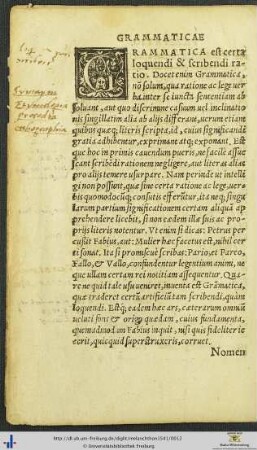 GRAMMATICAE
GRAMMATICA est certa
loquendi & scribendi ra-
tio. Docet enim Grammatica,
nõ solum, qua ratione ac lege uer
ba inter se iunctà sententiam ab
soluant, aut quo discrimine casuum uel inclinatio
nis singillatim alia ab alijs differant, uerum etiam
quibus quæq; literis scripta, id, cuius significandi
gratia adhibentur, exprimant atq; exponant. Est
que hoc in primis cauendum pueris, ne facilè assue
scant scribẽdi rationem negligere, aut literã aliã
pro alijs temerè usurpare. Nam perinde ut intelli
gi non possunt, quæ sine certa ratione ac lege, uer
bis quomodocũq; consutis efferũtur, ita neq; singu
larum partium significationem certam aliquã ap
prehendere licebit, si non eædem illæ suis ac pro-
prijs literis notentur. Vt enim si dicas: Petrus per
cussit Fabius, aut: Mulier hæc facetus est, nihil cer
ti sonat. Ita si promiscuè scribas: Pario, et Pareo,
Fallo, & Vallo, confundentur legentium animi, ne
que ullam certam rei notitiam assequentur. Qua-
re ne quid tale usu uenïret, inuenta est Grãmatica,
quæ traderet certũ artificiũ tam scribendi, quàm
loquendi. Estq; eadem hæc ars, cæterarum omniũ
ueluti fons & origo quædam, cuius fundamenta,
quemadmodum Fabius inquit, nisi quis fideliter ie
cerit, quicquid superstruxeris, corruet.
Nomen
http://dl.ub.uni-freiburg.de/diglit/melanchthon1541/0012
© Universitätsbibliothek Freiburg